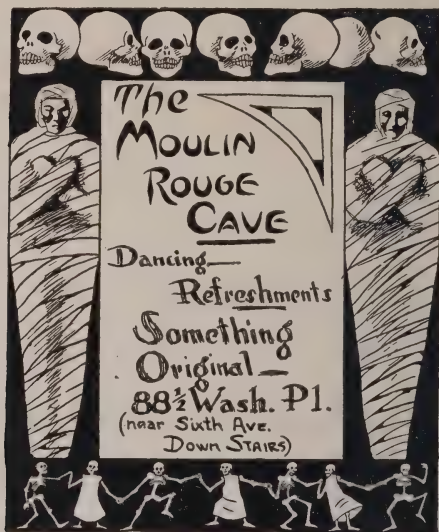 The
MOULIN
ROUGE
CAVE
Dancing—
Refreshments
Something
Original—
88½ Wash. Pl.
(near Sixth Ave.
DOWN STAIRS)